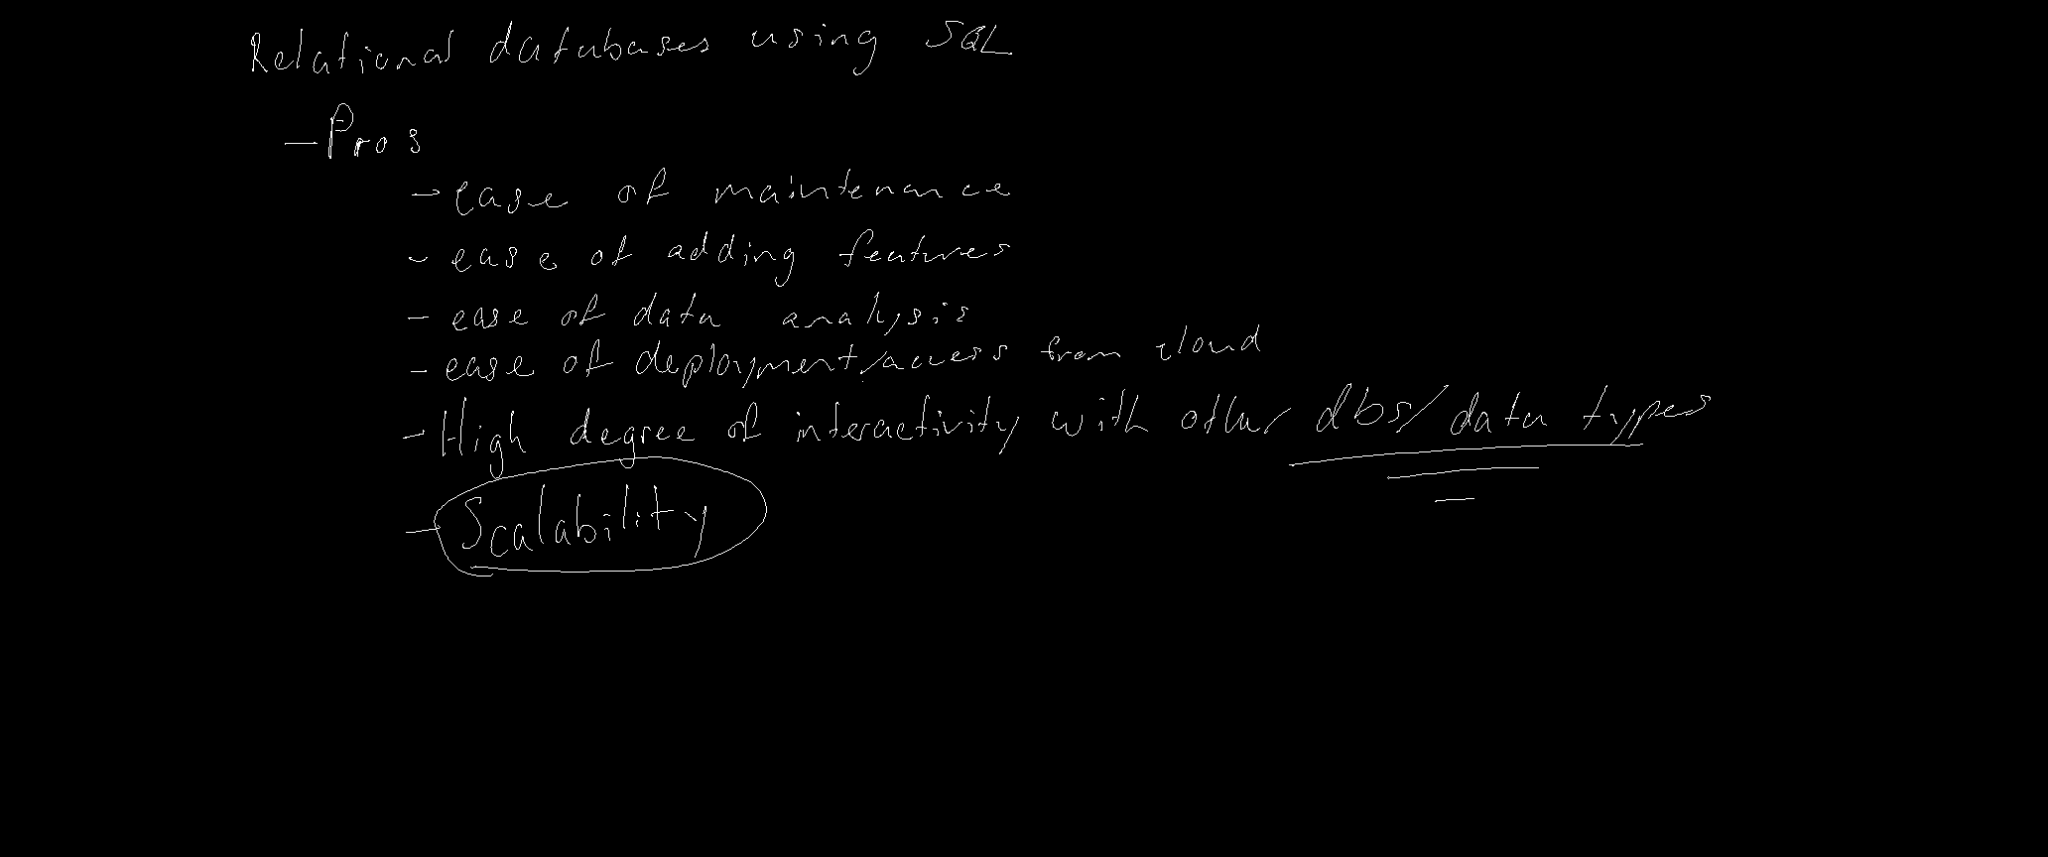 Relational databases using SQL
- Pros
- ease of maintenance
- ease of adding features
- ease of data analysis
- ease of deployment/access from cloud
- High degree of interactivity with other dbs/data types
- Scalability